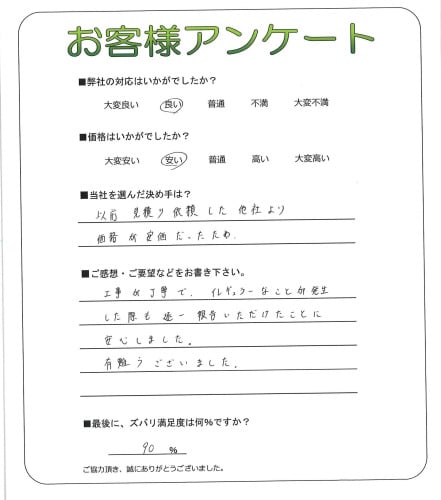 お客様アンケート
■弊社の対応はいかがでしたか？
大変良い 良い 普通 不満 大変不満
■価格はいかがでしたか？
大変安い 安い 普通 高い 大変高い
■当社を選んだ決め手は？
以前 見積り依頼した他社より
価格が安価だったため.
■ご感想・ご要望などをお書き下さい。
工事が丁寧で、イレギュラーなことが発生
した際も逐一報告いただけたことに
安心しました。
有難うございました。
■最後に、ズバリ満足度は何%ですか？
90 %
ご協力頂き、誠にありがとうございました。